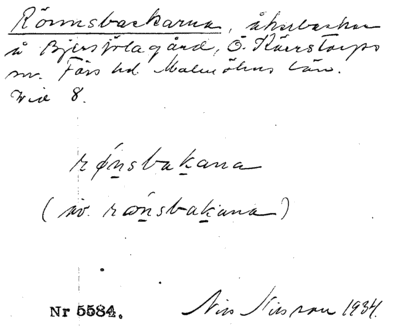 Rönnsbackarna, åkerbackar
å Bjersjölagård, Ö. Kärrstorps
sn. Färs hd. Malmöhus län.
Wie 8.
rǿnsbakana
(äv. rønsbakana)
Nr 5584. Nils Nilsson 1934.